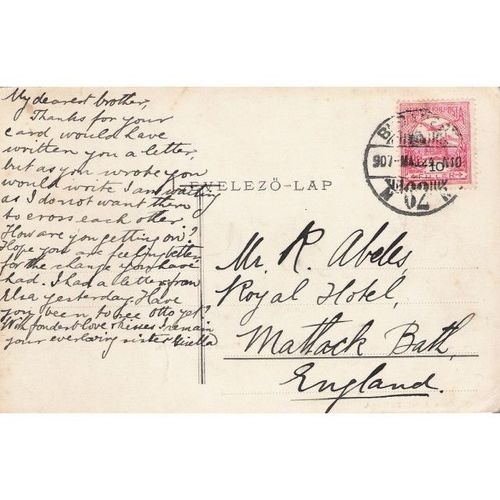 My dearest brother,
Thanks for your
card would have
written you a letter,
but as you wrote you
would write I am waiting
as I do not want them
to cross each other.
How are you getting on?
Hope you are feeling better
for the change you have
had. I had a letter from
Elsa yesterday. Have
you been to see Otto yet?
With fondest love & kisses I remain
your everloving sister Gisella
EVELEZŐ-LAP
Mr. R. Abeles,
Royal Hotel,
Mattock Bath,
England.
907
70
10
FILLÉR